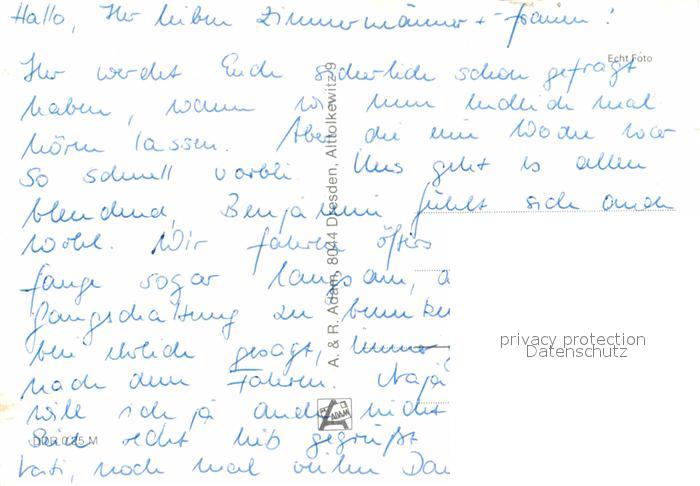 Hallo, Ihr lieben Zimmermänner + -frauen!
Echt Foto
Ihr werdet Euch sicherlich schon gefragt
haben, wann wir nun endlich mal
hören lassen. Aber die eine Woche war
so schnell vorbei. Uns geht es allen
blendend, Benjamin fühlt sich auch
wohl. Wir fahren öfters
fange sogar langsam, a
Gangschaltung zu
bin ehrlich gesagt, immer
nach dem Fahren. Naja
will ich ja auch nicht
Seid recht lieb gegrüßt
noch mal vielen Dan
A. & R. Adam, 8044 Dresden, Alttolkewitz 9
ADAM
DDR 0,25 M
privacy protection
Datenschutz